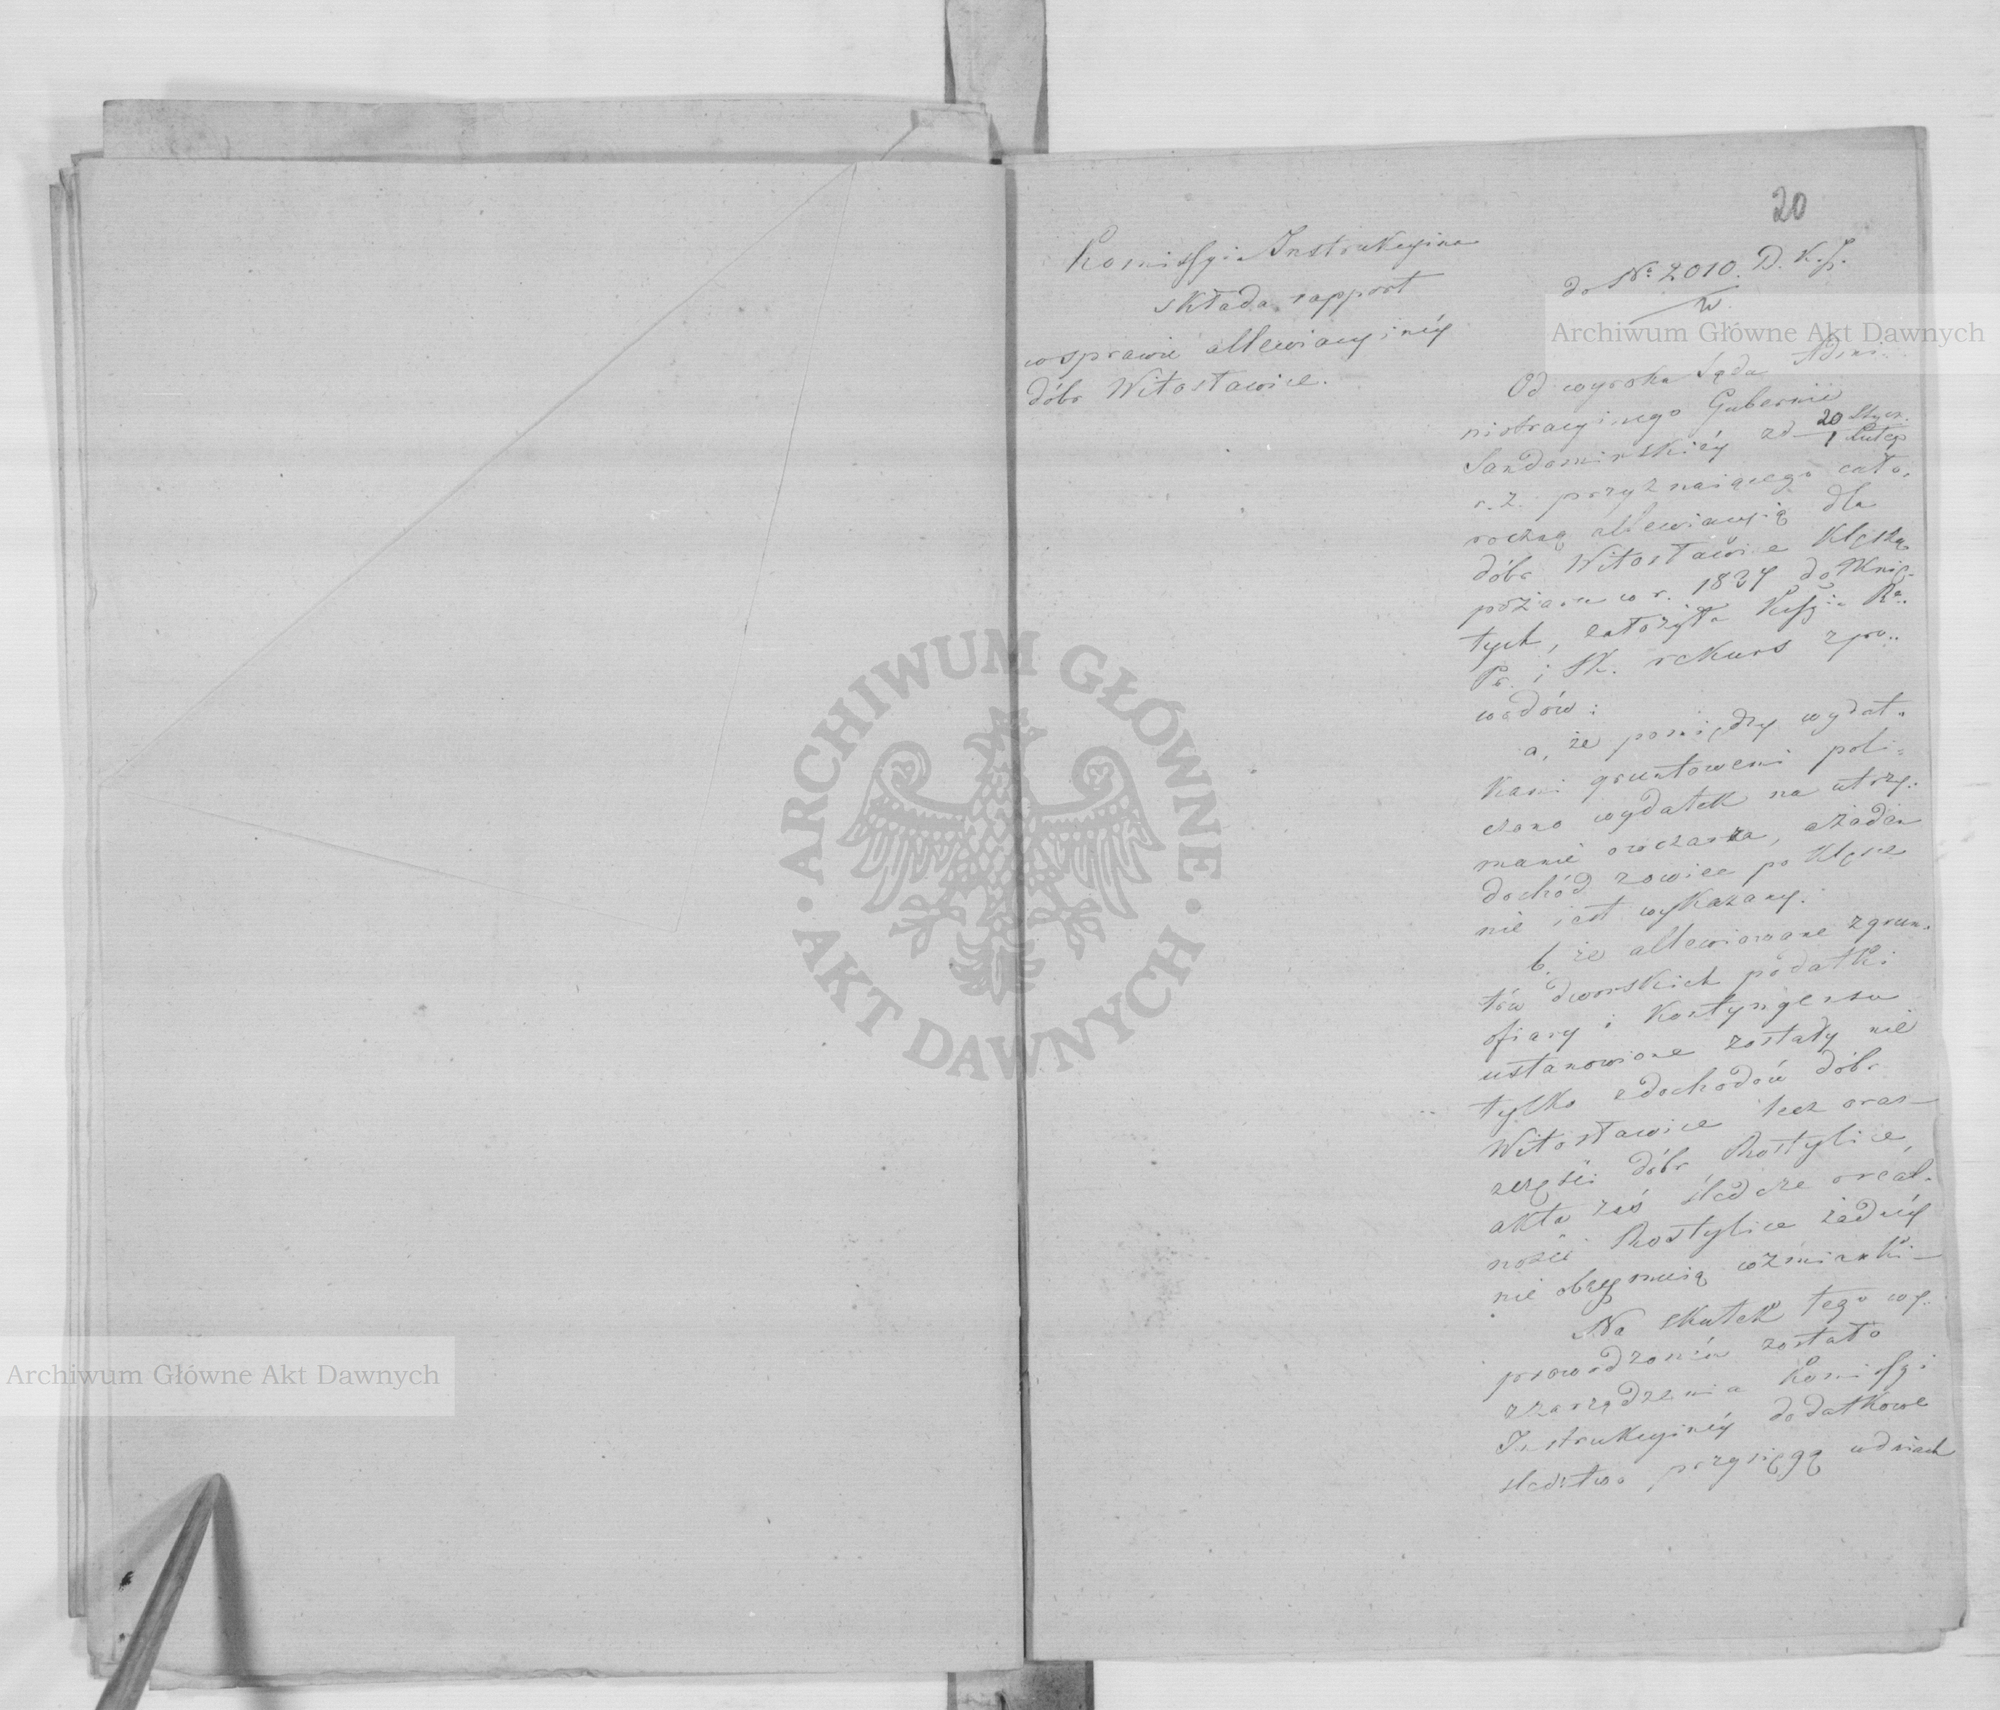 20
Komissyia Instrukcyina
składa rapport
w sprawie allewiacyinéy
dóbr Witosławice.
do Nº 2010. D. K. J.
W.
Od wyroku Sądu Admi-
nistracyinego Gubernii
Sandomirskiéy z d 20 Stycz. / 1 Lutego
r. z. przyznaiącego cało-
roczną allewiacyią dla
dóbr Witosławice klęską
pożaru w r. 1837 dotknię-
tych, założyła Kssyia Rz.
Pr. i Sk. rekurs z po-
wodów:
a, że pomiędzy wydat-
kami gruntowemi poli-
czono wydatek na utrzy-
manie owczarza, a żaden
dochód z owiec po klęsce
nie iest wykazany.
b. że allewiowane z grun-
tów dworskich podatki
ofiary i kontyngensu
ustanowione zostały nie
tylko z dochodów dóbr
Witosławice lecz oraz
z części dóbr Roztylice,
akta zaś śledcze o real-
ności Roztylice żadnéy
nie obeymuią wzmianki
Na skutek tego wy-
prowadzonéw zostało
z zarządzenia Komissyi
Instrukcyinéy dodatkowe
śledztwo przysięgą w dniach
Archiwum Główne Akt Dawnych
ARCHIWUM GŁÓWNE AKT DAWNYCH
Archiwum Główne Akt Dawnych